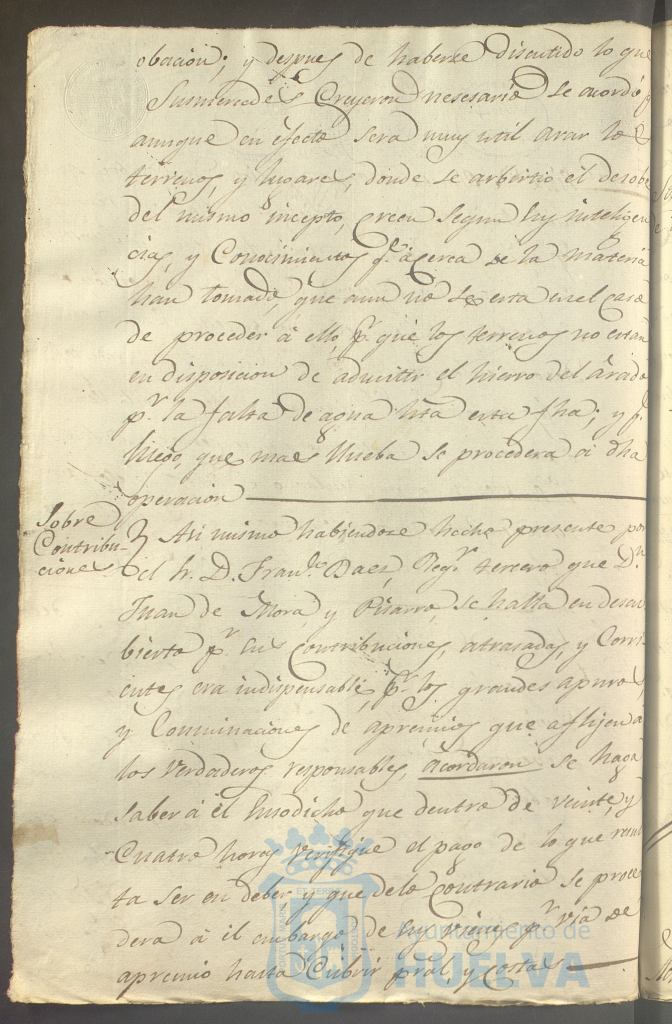 obacion; y despues de haberse discutido lo que
Susmercedes Creyeron nesesario se acordó q.
aunque en efecto sera muy util arar los
terrenos, y lugares, donde se advirtio el desobe
del mismo incepto, creen segun sus inteligen
cias, y Conocimientos q.e acerca de la materia
han tomado, que aun no se esta en el caso
de proceder á ello, p.r que los terrenos no estan
en disposicion de admitir el hierro del arado
p.r la falta de agua hta esta fha; y q.
luego, que mas llueba se procedera á dha
operacion
Sobre
Contribu-
ciones
Asi mismo habiendose hecho presente por
el Sr. D. Fran.co Baez, Reg.r tercero que D.n
Juan de Mora, y Pisarro, se halla en descu
bierto p.r sus Contribuciones, atrasadas, y Corri
entes era indispensable, p.r los grandes apuros,
y Conminaciones de apremios que aflijen a
los Verdaderos responsables, acordaron se haga
saber á él Susodicho que dentro de veinte, y
Cuatro horas Verifique el pago de lo que resul
ta ser en deber y que delo Contrario se proce
dera á el embargo de sus vienes p.r via de
apremio hasta Cubrir pral y Costas
Ayuntamiento de
HUELVA